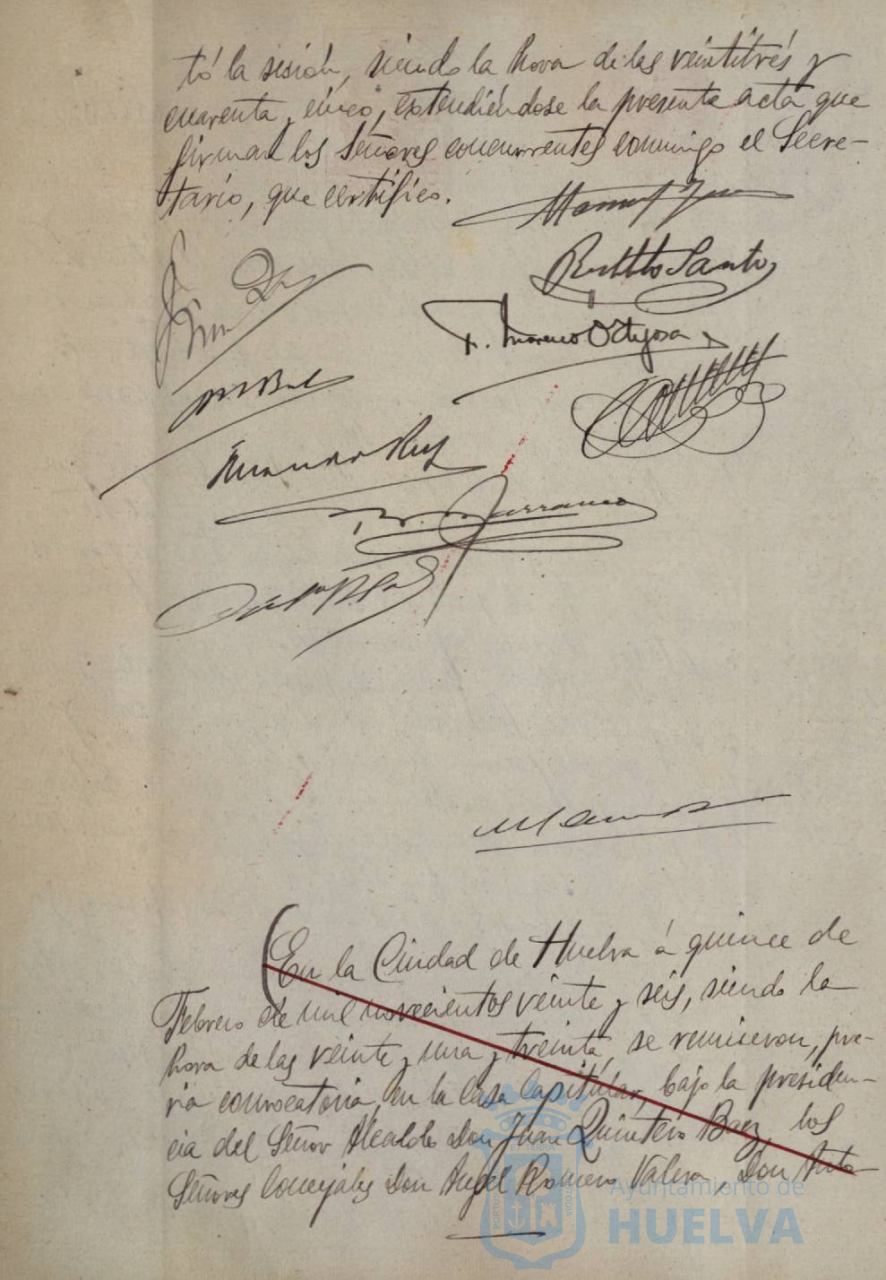 tó la sesión, siendo la hora de las veintitrés y
cuarenta y cinco, extendiéndose la presente acta que
firman los Señores concurrentes conmigo el Secre-
tario, que certifico.
Santos
F. Moreno Ortega
Ruiz
En la Ciudad de Huelva á quince de
Febrero de mil novecientos veinte y seis, siendo la
hora de las veinte y una y treinta, se reunieron, pre-
via convocatoria, en la Casa Capitular, bajo la presiden-
cia del Señor Alcalde Don Juan Quintero Baez, los
Señores Concejales Don Angel Romero Valera, Don Anto-
Ayuntamiento de
HUELVA